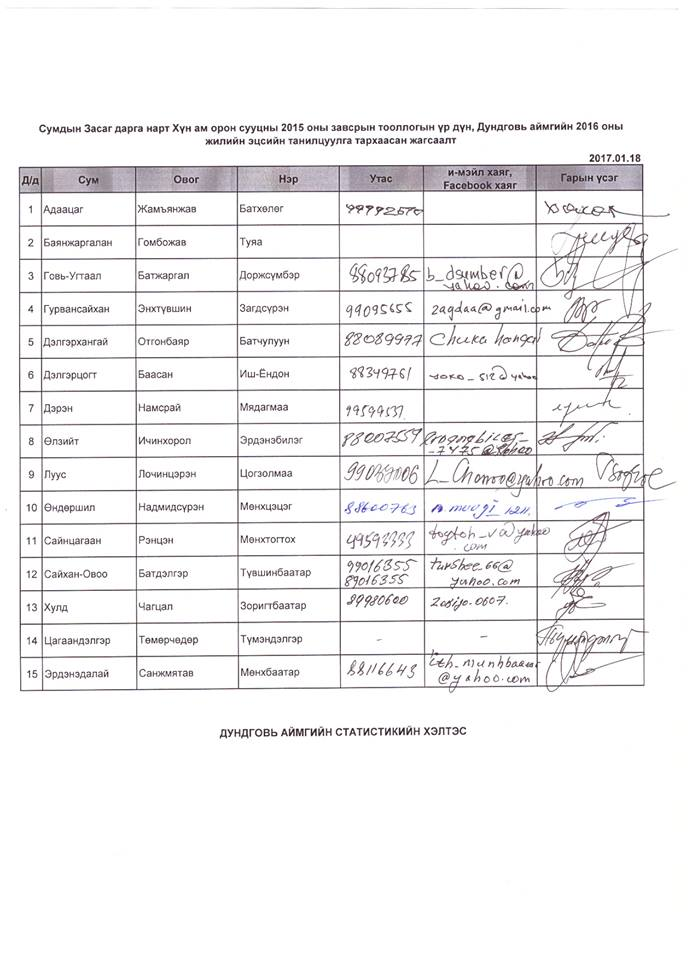 Сумдын Засаг дарга нарт Хүн ам орон сууцны 2015 оны завсрын тооллогын үр дүн, Дундговь аймгийн 2016 оны
жилийн эцсийн танилцуулга тархаасан жагсаалт
2017.01.18
Д/д Сум Овог Нэр Утас и-мэйл хаяг, Facebook хаяг Гарын үсэг
1 Адаацаг Жамъянжав Батхөлөг
2 Баянжаргалан Гомбожав Туяа
3 Говь-Угтаал Батжаргал Доржсүмбэр 88093785 b_dsumber@
yahoo.com
4 Гурвансайхан Энхтүвшин Загдсүрэн 99095655 zagdaa@gmail.com
5 Дэлгэрхангай Отгонбаяр Батчулуун 88089997
6 Дэлгэрцогт Баасан Иш-Ёндон 88349761
7 Дэрэн Намсрай Мядагмаа 99599537
8 Өлзийт Ичинхорол Эрдэнэбилэг 88007559
9 Луус Лочинцэрэн Цогзолмаа
10 Өндөршил Надмидсүрэн Мөнхцэцэг 88600763
11 Сайнцагаан Рэнцэн Мөнхтогтох togtoh_v@yahoo
.com
12 Сайхан-Овоо Батдэлгэр Түвшинбаатар 99016355 turshee_66@
89016355 yahoo.com
13 Хулд Чагцал Зоригтбаатар 89980600
14 Цагаандэлгэр Төмөрчөдөр Түмэндэлгэр - -
15 Эрдэнэдалай Санжмятав Мөнхбаатар 88116643
@yahoo.com
ДУНДГОВЬ АЙМГИЙН СТАТИСТИКИЙН ХЭЛТЭС